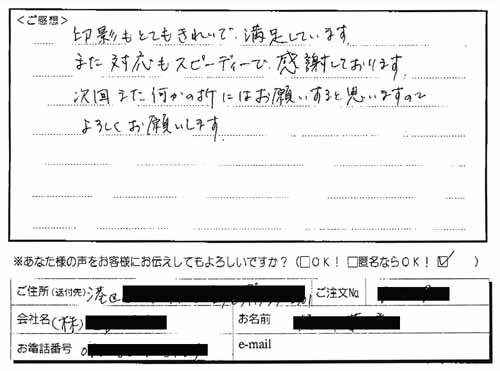 <ご感想>
印影もとてもきれいで、満足しています
また対応もスピーディーで、感謝しております。
次回また何かの折にはお願いすると思いますので
よろしくお願いします。
※あなた様の声をお客様にお伝えしてもよろしいですか?(□OK! □匿名ならOK! ☑ )
ご住所(送付先) 港 ご注文No.
会社名 (株) お名前
お電話番号 e-mail